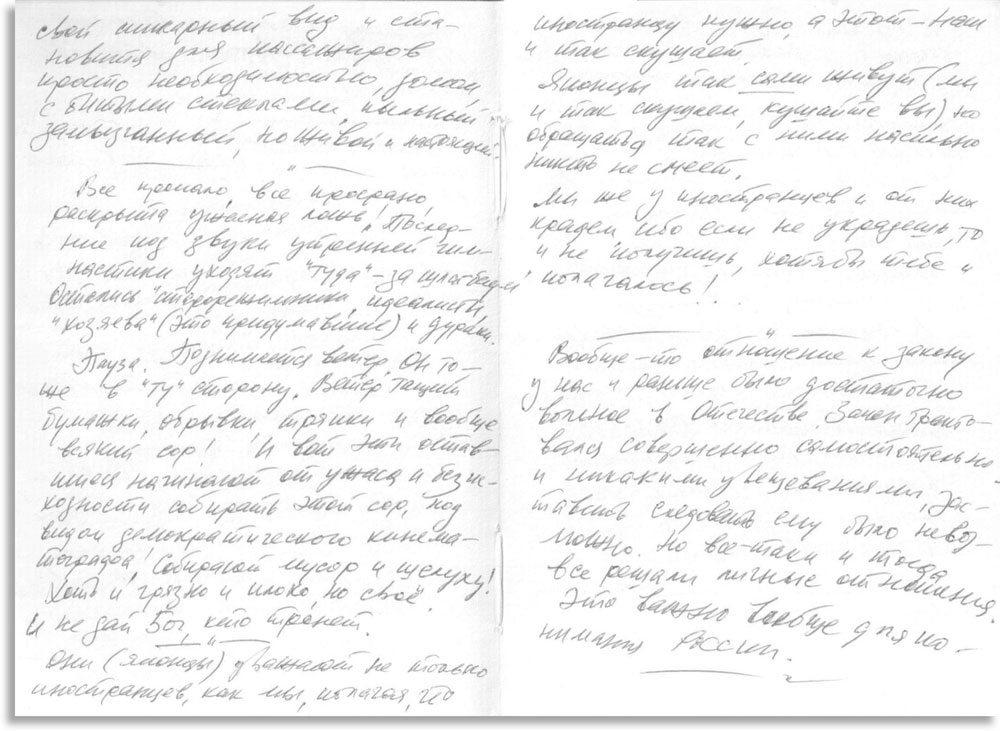 свой шикарный вид и ста-
новится для пассажиров
просто необходимостью, домом
с битыми стеклами, пыльный,
замызганный, но живой и настоящий.
— " —
Все пропало, все просрано,
раскрыта ужасная ложь! Послед-
ние под звуки утренней гим-
настики уходят "туда" - за шлагбаум!
Остались "старорежимники, идеалисты,
"хозяева" (это придумавшие) и дураки.
Пауза. Поднимается ветер. Он то-
же в "ту" сторону. Ветер тащит
бумажки, обрывки, тряпки и вообще
всякий сор! И вот эти остав-
шиеся начинают от ужаса и безыс-
ходности собирать этот сор, под
видом демократического кинема-
тографа! Собирают мусор и шелуху!
Хоть и грязно и плохо, но своё.
И не дай Бог, кто тронет.
— " —
Они (японцы) уважают не только
иностранцев, как мы, полагая, что
иностранцу нужно, а этот - наш
и так скушает.
Японцы так сами живут (мы
и так скушаем, кушайте вы) но
обращаться так с ними настолько
никто не смеет.
Мы же у иностранцев и от них
крадем ибо если не украдешь, то
и не получишь, хотя бы тебе и
полагалось!
— " —
Вообще-то отношение к закону
у нас и раньше было достаточно
вольное в Отечестве. Закон тракто-
вался совершенно самостоятельно
и никакими увещеваниями, зас-
тавить следовать ему было невоз-
можно. Но все-таки и тогда
все решали личные отношения.
Это важно вообще для по-
нимания России.